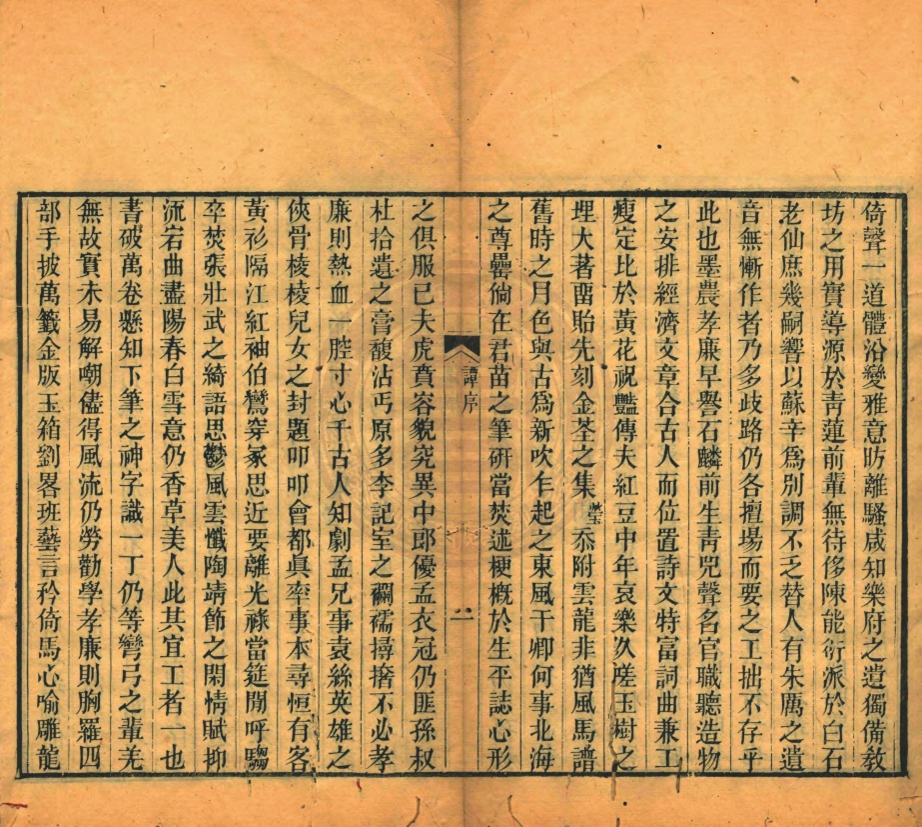 倚聲一道體沿變雅意昉離騷咸知樂府之遺獨備敎
坊之用實導源於靑蓮前輩無待侈陳能衍派於白石
老仙庶幾嗣響以蘇辛爲別調不乏替人有朱厲之遺
音無慚作者乃多歧路仍各擅場而要之工拙不存乎
此也墨農孝廉早譽石麟前生靑兕聲名官職聽造物
之安排經濟文章合古人而位置詩文特富詞曲兼工
瘦定比於黃花祝豔傳夫紅豆中年哀樂久嗟玉樹之
埋大著畱貽先刻金荃之集瑩忝附雲龍非猶風馬譜
舊時之月色與古爲新吹乍起之東風干卿何事北海
之尊罍倘在君苗之筆硏當焚述梗槪於生平誌心形
譚序
二
之俱服已夫虎賁容貌究異中郎優孟衣冠仍匪孫叔
杜拾遺之膏馥沾丐原多李記室之襴襦撏撦不必孝
廉則熱血一腔寸心千古人知劇孟兄事袁絲英雄之
俠骨棱棱兒女之封題叩叩會都眞率事本尋恒有客
黃衫隔江紅袖伯鸞穿冢思近要離光祿當筵閒呼騶
卒焚張壯武之綺語思鬱風雲懺陶靖節之閑情賦抑
流宕曲盡陽春白雪意仍香草美人此其宜工者一也
書破萬卷懸知下筆之神字識一丁仍等彎弓之輩羌
無故實未易解嘲儘得風流仍勞勸學孝廉則胸羅四
部手披萬籤金版玉箱劉畧班藝言矜倚馬心喻雕龍